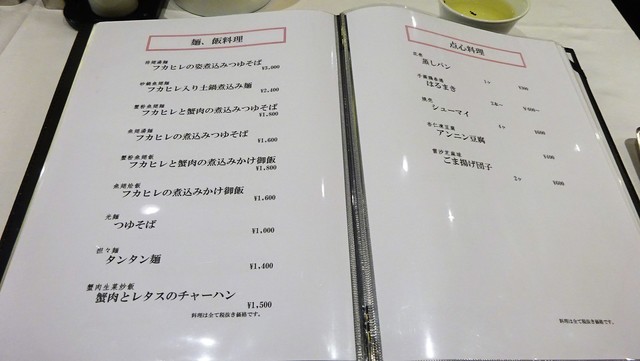 麺、飯料理
フカヒレの姿煮込みつゆそば
フカヒレ入り土鍋煮込み麺
¥2,400
蟹粉魚翅麺
フカヒレと蟹肉の煮込みつゆそば
¥1,800
魚翅湯麺
フカヒレの煮込みつゆそば
¥1,600
蟹粉魚翅飯
フカヒレと蟹肉の煮込みかけ御飯
¥1,800
魚翅烩飯
フカヒレの煮込みかけ御飯
¥1,600
光麺
つゆそば
¥1,000
担々麺
タンタン麺
¥1,400
蟹肉生菜炒飯
蟹肉とレタスのチャーハン
¥1,500
料理は全て税抜き価格です。
点心料理
蒸しパン
はるまき
焼売
シューマイ
杏仁凍豆腐
アンニン豆腐
¥400
ごま揚げ団子
¥600
料理は全て税抜き価格です。